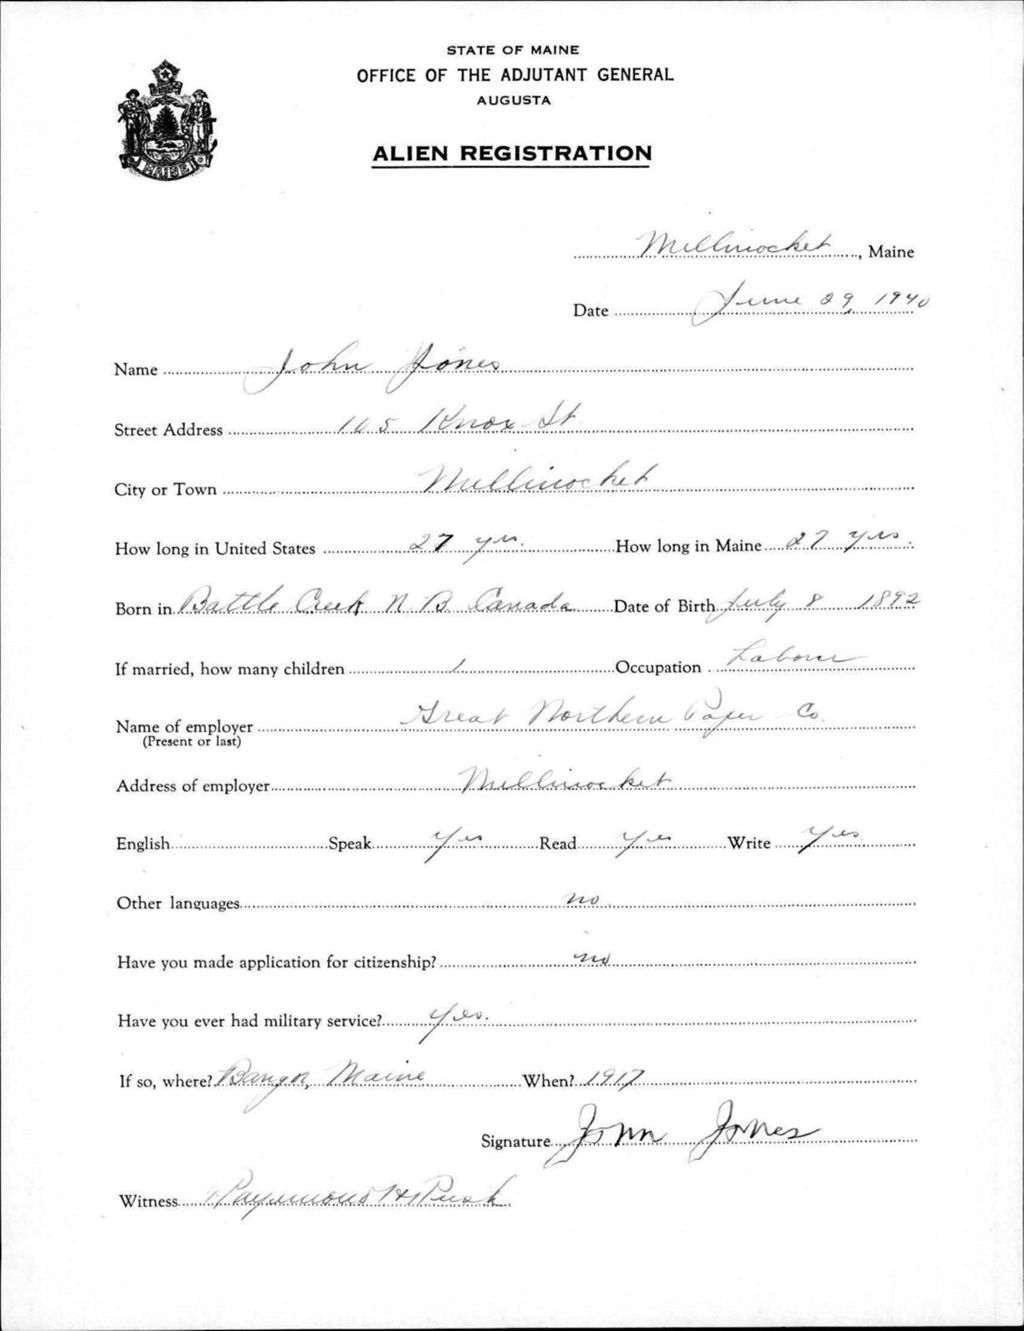 STATE OF MAINE
OFFICE OF THE ADJUTANT GENERAL
AUGUSTA
ALIEN REGISTRATION
MAINE
Millinocket, Maine
Date June 29, 1940
Name John Jones
Street Address 105 Knox St
City or Town Millinocket
How long in United States 27 yrs. How long in Maine 27 yrs.
Born in Battle Creek N B. Canada Date of Birth July 8 1892
If married, how many children 1 Occupation Laborer
Name of employer Great Northern Paper Co.
(Present or last)
Address of employer Millinocket
English Speak Yes Read Yes Write Yes
Other languages no
Have you made application for citizenship? no
Have you ever had military service? Yes.
If so, where? Bangor, Maine When? 1917
Signature John Jones
Witness Raymond H Rush